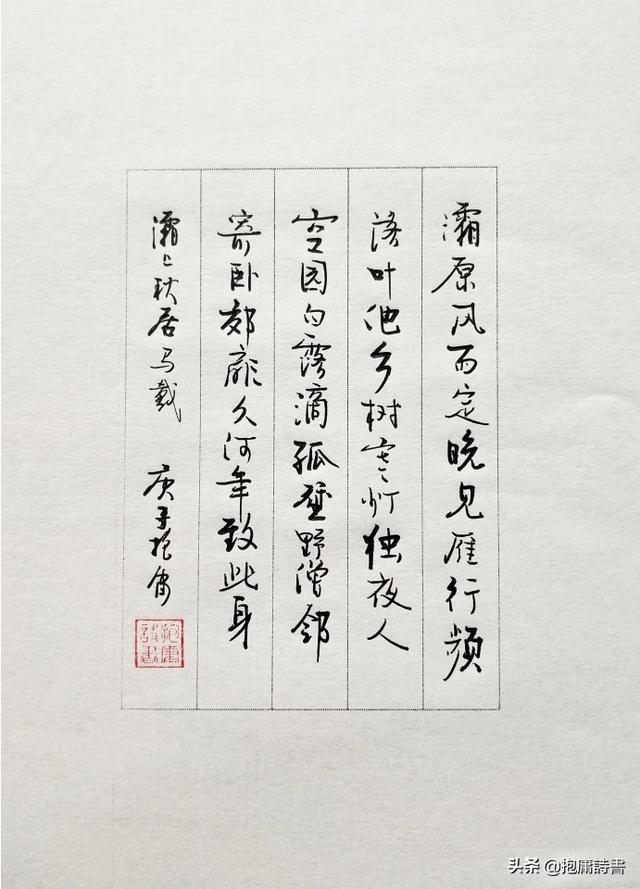 灞原风雨定晚见雁行频
落叶他乡树寒灯独夜人
空园白露滴孤壁野僧邻
寄卧郊扉久何年致此身
灞上秋居马戴 庚子抱庸
抱庸
詩書
头条 @抱庸詩書